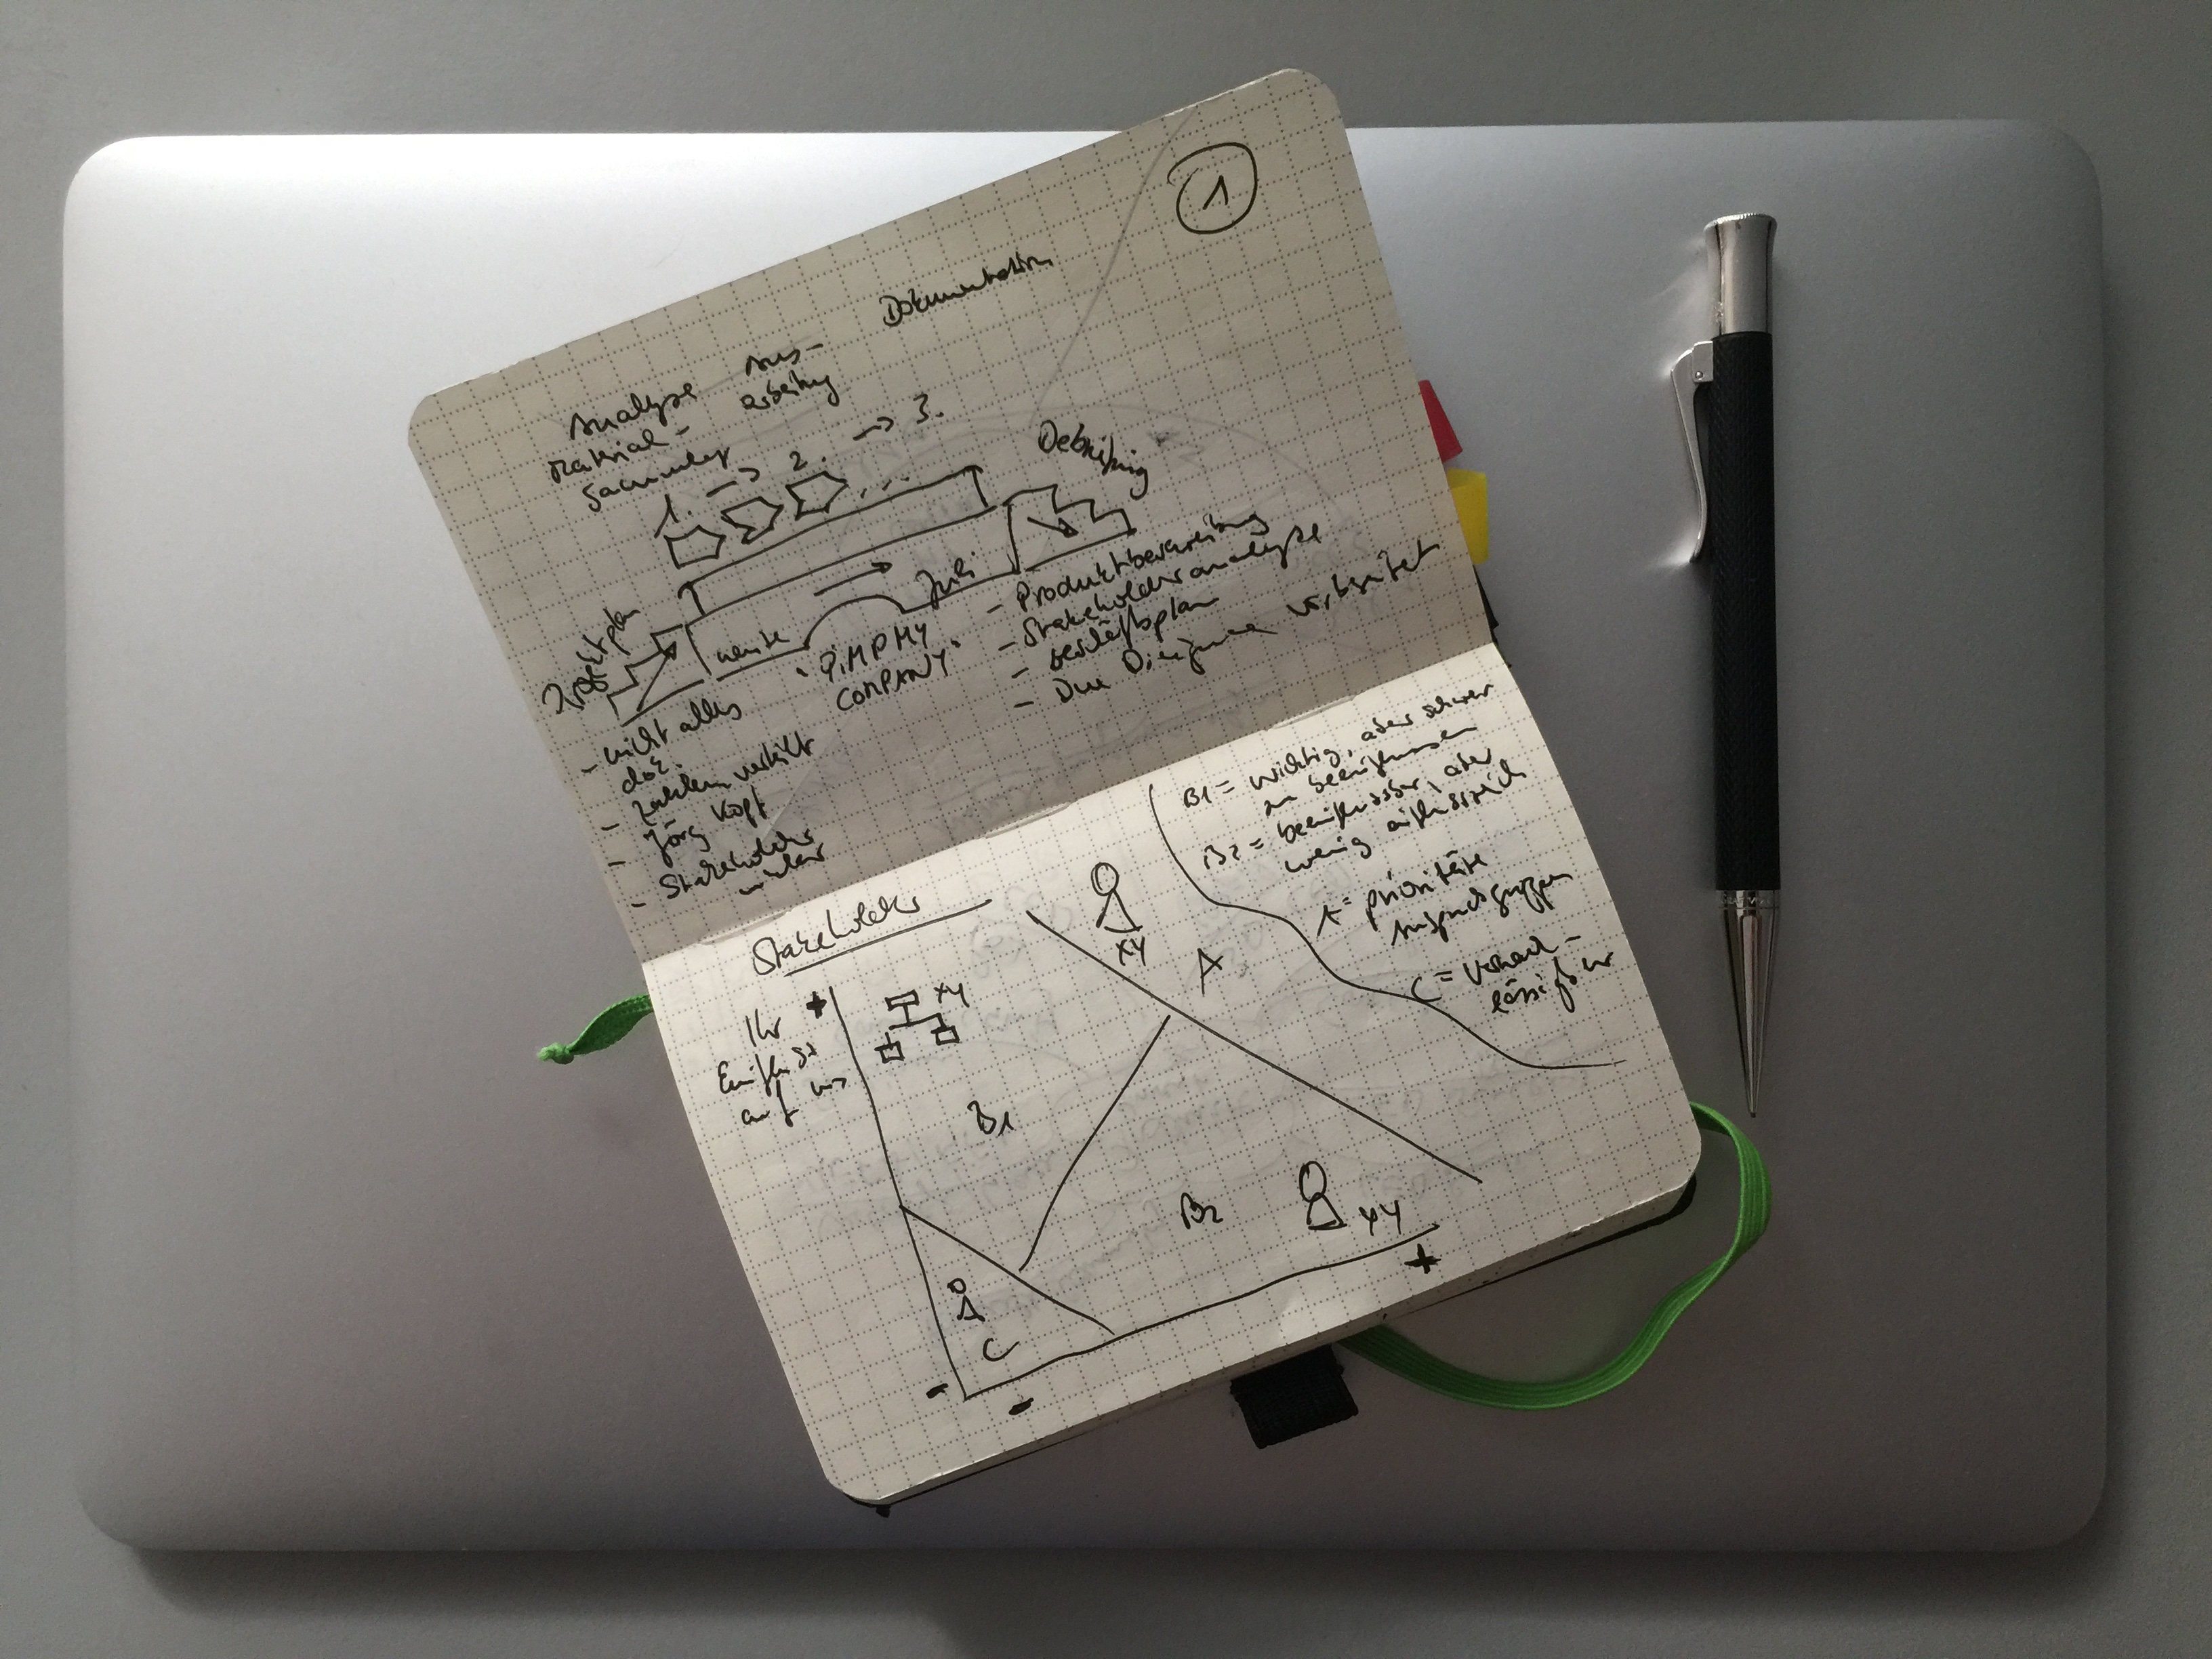 1
Dokumentation
Analyse
Material-
sammlung
Aus-
arbeitung
1. → 2. → 3.
Debriefing
Projektplan
heute
Juli
"PIMP MY
COMPANY"
- nicht alles
dok.
- Zahlen verteilt
- Jörg Kopf
- Stakeholder
- Produktbeschreibung
- Stakeholderanalyse
- Geschäftsplan
- Due Diligence vorbereitet
Stakeholder
Ihr
Einfluss
auf uns
+
XY
B1
XY
A
B2
XY
+
C
-
-
B1 = wichtig, aber schwer
zu beeinflussen
B2 = beeinflussbar, aber
wenig einflussreich
A = priorisierte
Anspruchsgruppen
C = vernach-
lässigbar